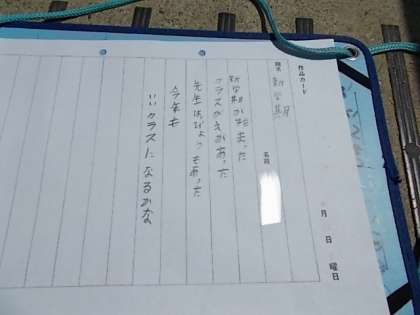 作品カード
題名 新学期
名前
月 日 曜日
新学期が始まった
クラスがえがあった
先生はっぴょうもあった
今年も
いいクラスになるかな